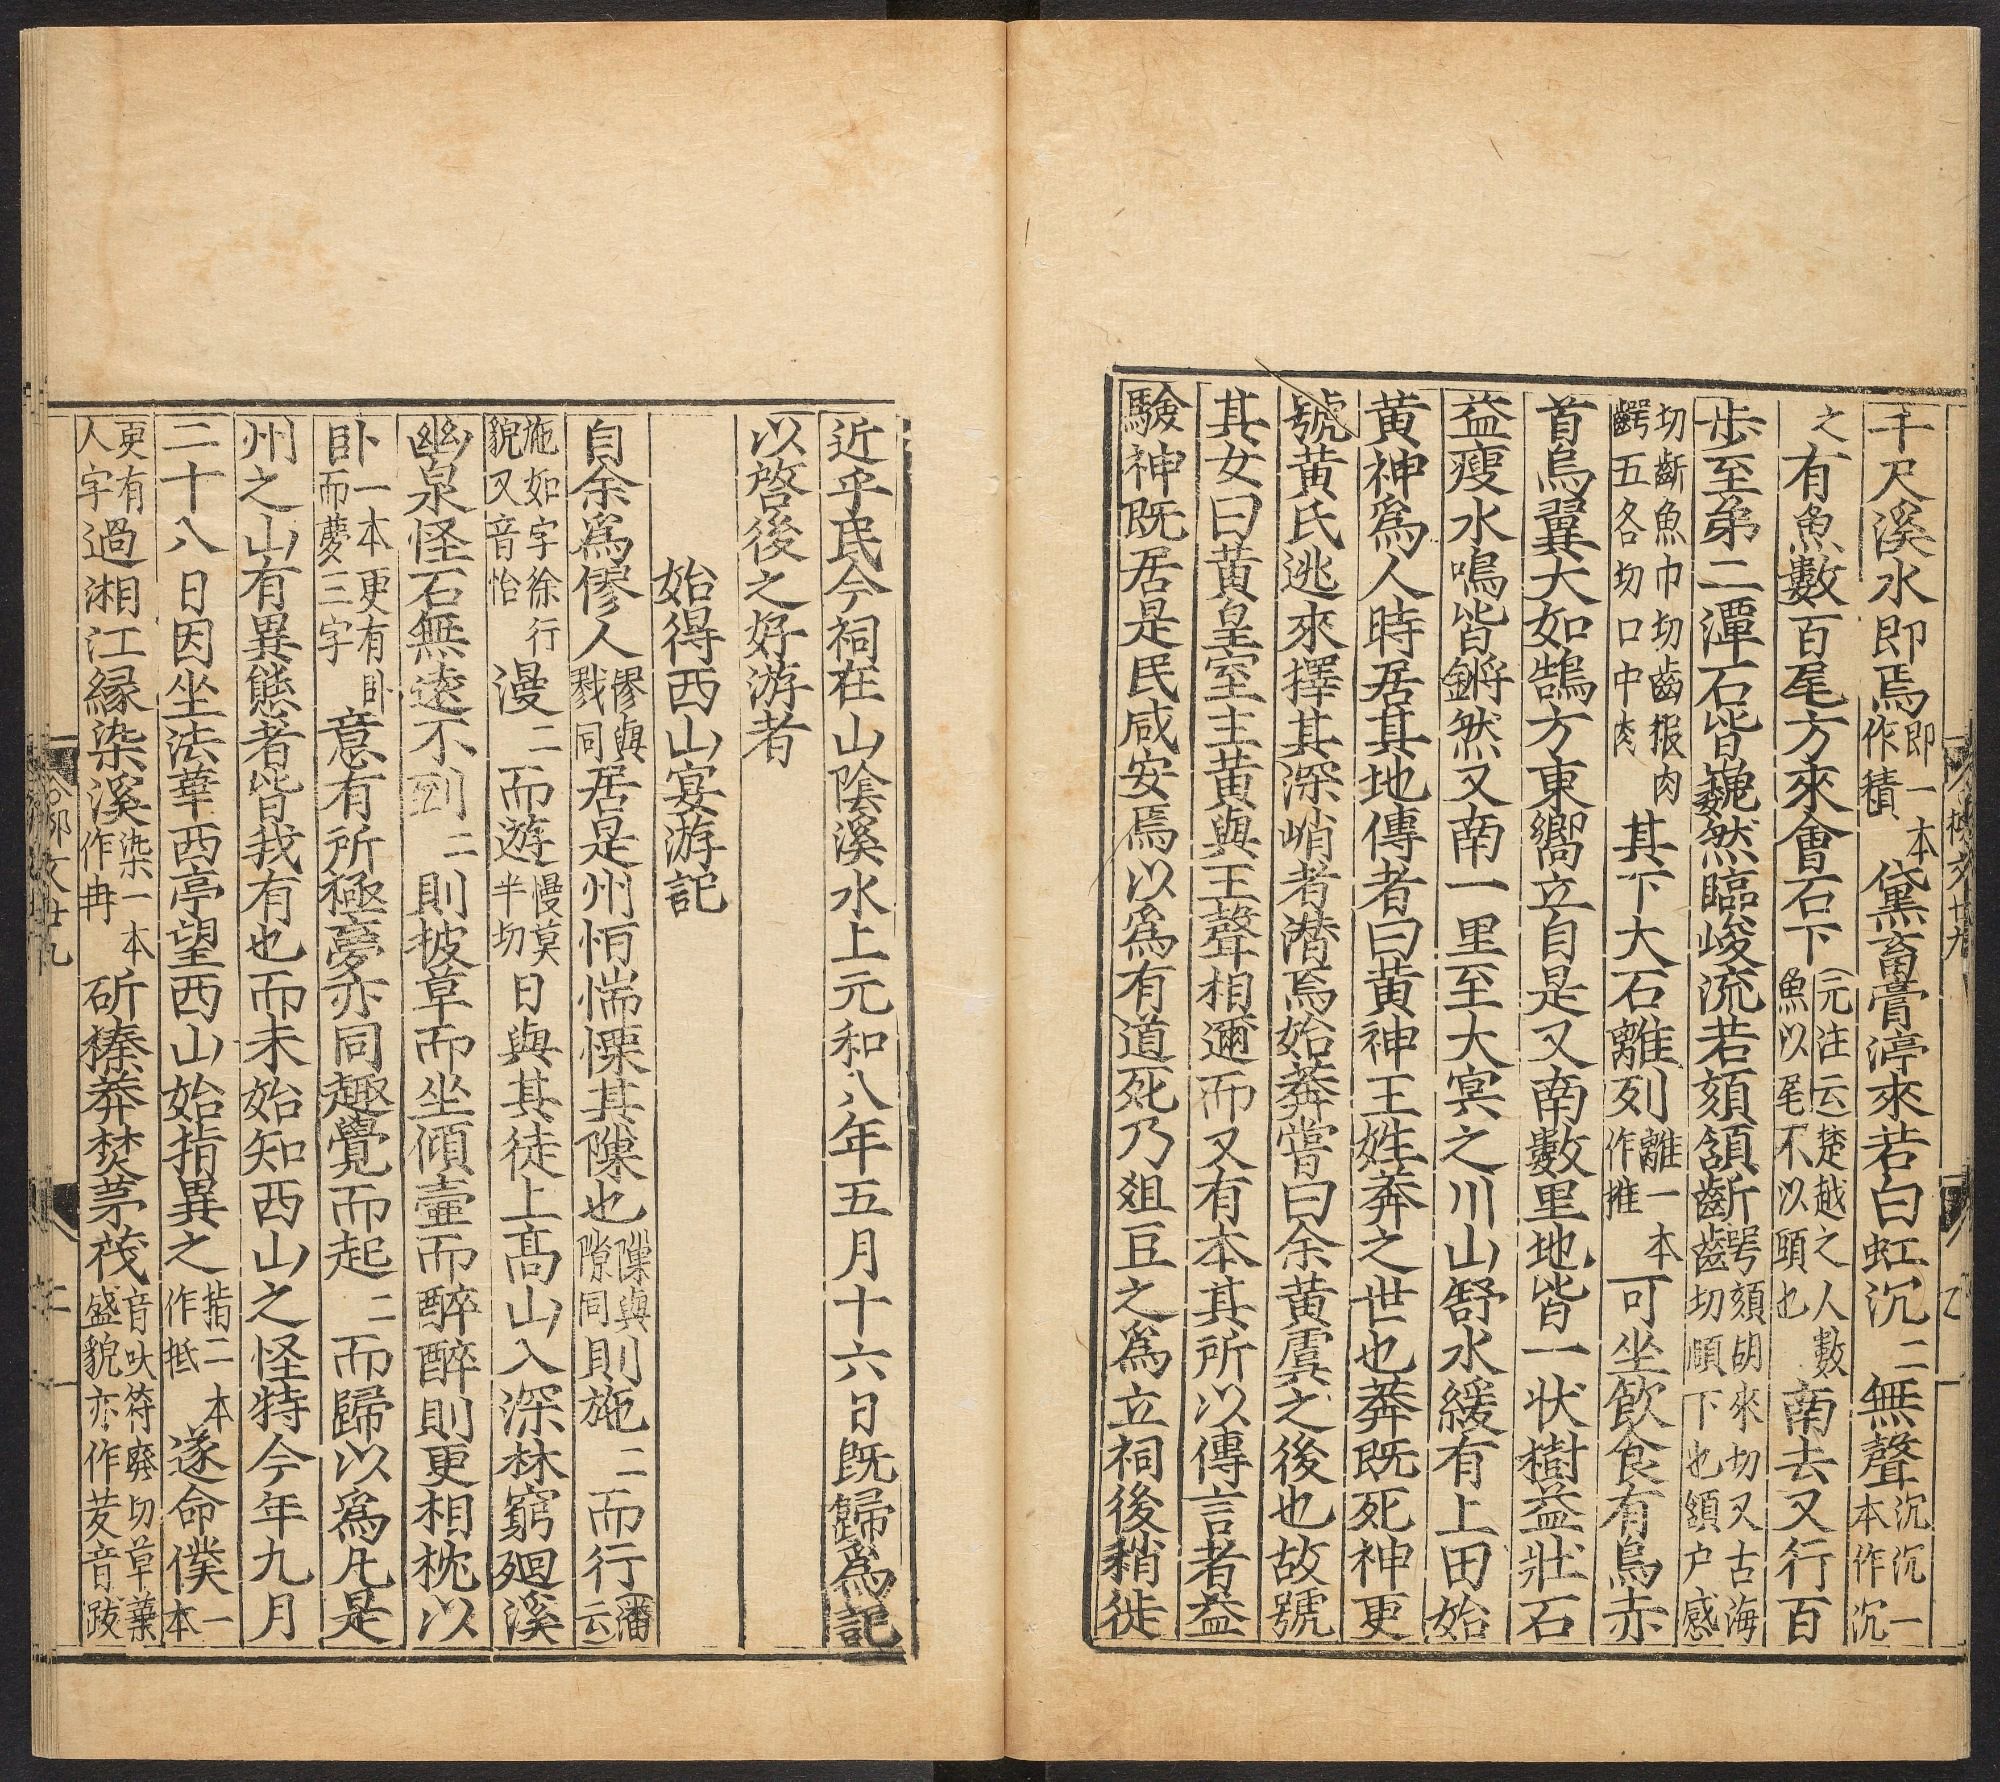 千尺溪水即焉即一本作積黛畜膏渟來若白虹沉二無聲沉沉一本作沉
之有魚數百尾方來會石下元注云楚越之人數魚以尾不以頭也南去又行百
步至第二潭石皆巍然臨峻流若頦頷齗齶頦胡來切又古海切頤下也頷户感
切齗魚巾切齒根肉齶五各切口中肉其下大石離列離一本作摧可坐飲食有鳥赤
首烏翼大如鵠方東嚮立自是又南數里地皆一状樹益壯石
益瘦水鳴皆鏘然又南一里至大冥之川山舒水緩有上田始
黄神為人時居其地傳者曰黄神王姓莽之世也莽既死神更
號黄氏逃來擇其深峭者潜焉始莽嘗曰余黄虞之後也故號
其女曰黄皇室主黄與王聲相邇而又有本其所以傳言者益
驗神既居是民咸安焉以為有道死乃爼豆之為立祠後稍徙
近乎民今祠在山陰溪水上元和八年五月十六日既歸為記
以啓後之好游者
始得西山宴游記
自余為僇人僇與戮同居是州恒惴慄其隟也隟與隙同則施二而行潘云
施如字徐行貌又音怡漫二而遊慢莫半切日與其徒上髙山入深林窮廻溪
幽泉怪石無逺不到二則披草而坐傾壷而醉醉則更相枕以
卧一本更有卧而夢三字意有所極夢亦同趣覺而起二而歸以為凡是
州之山有異態者皆我有也而未始知西山之怪特今年九月
二十八日因坐法華西亭望西山始指異之指二本作抵遂命僕一本
更有人字過湘江縁染溪染一本作冉斫榛莽焚茅茷音吠符廢切草葉盛貌亦作茇音跋